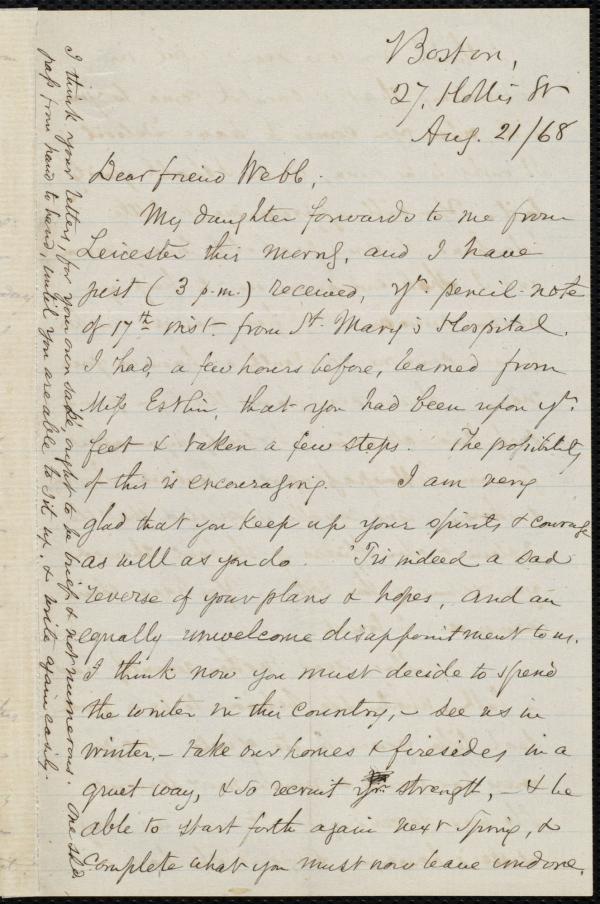 Boston,
27, Hollis St
Aug. 21/68
Dear friend Webb;
My daughter forwards to me from
Leicester this morng, and I have
just (3 p.m.) received, yr. pencil-note
of 17th inst. from St. Mary's Hospital.
I had, a few hours before, learned from
Miss Estlin, that you had been upon yr.
feet & taken a few steps. The possibility
of this is encouraging. I am very
glad that you keep up your spirits & courage
as well as you do. 'Tis indeed a sad
reverse of your plans & hopes, and an
equally unwelcome disappointment to us.
I think now you must decide to spend
the winter in this country, – see us in
winter, – take our homes & firesides in a
quiet way, & so recruit yr. strength, – & be
able to start forth again next Spring, &
complete what you must now leave undone.
I think your letters, for your own sake, ought to be brief & not numerous. One shd.
pass from hand to hand, until you are able to sit up, & write again easily.